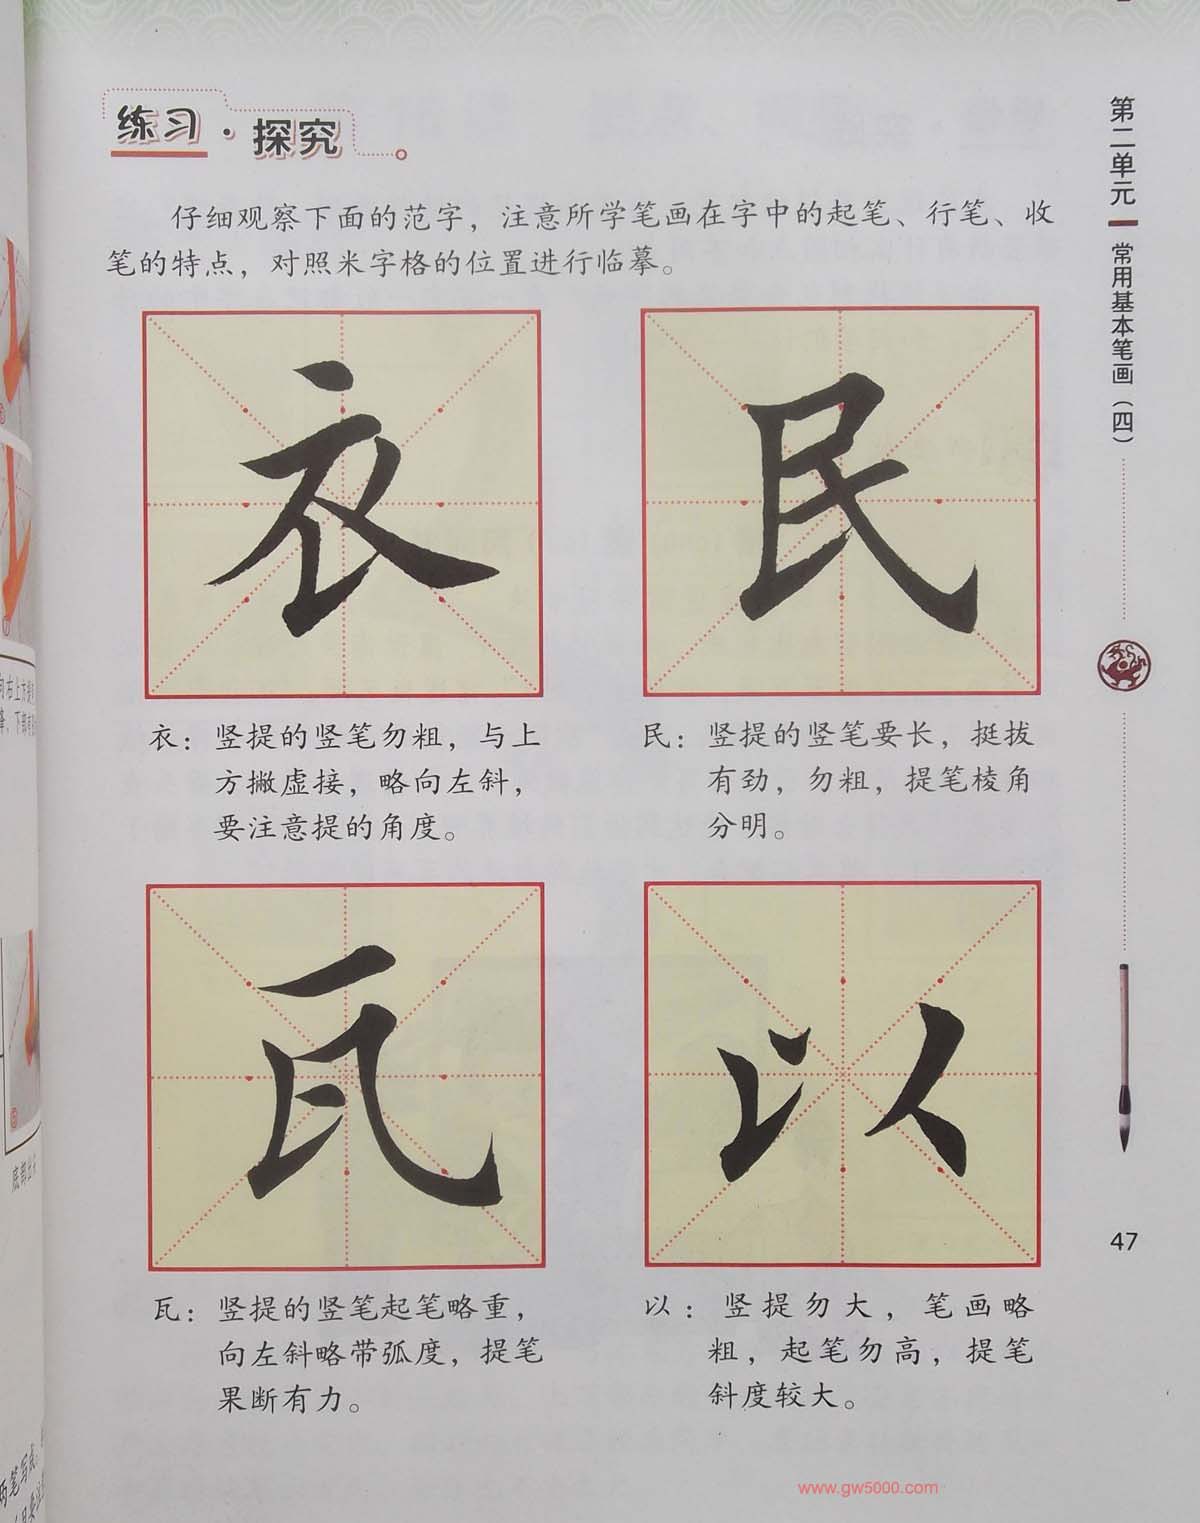 练习·探究
仔细观察下面的范字，注意所学笔画在字中的起笔、行笔、收
笔的特点，对照米字格的位置进行临摹。
衣
民
衣：竖提的竖笔勿粗，与上
方撇虚接，略向左斜，
要注意提的角度。
民：竖提的竖笔要长，挺拔
有劲，勿粗，提笔棱角
分明。
瓦
以
瓦：竖提的竖笔起笔略重，
向左斜略带弧度，提笔
果断有力。
以：竖提勿大，笔画略
粗，起笔勿高，提笔
斜度较大。
第二单元
常用基本笔画（四）
47
www.gw5000.com